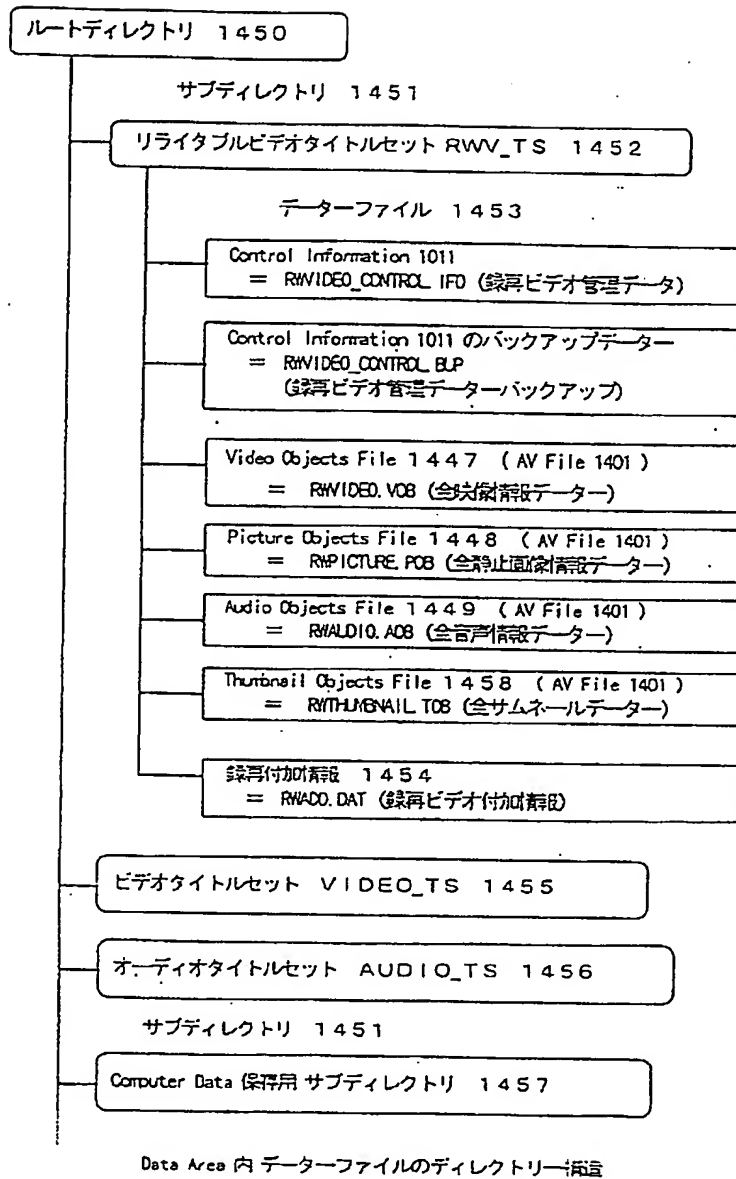 ルートディレクトリ 1450
サブディレクトリ 1451
リライタブルビデオタイトルセット RWV_TS 1452
データーファイル 1453
Control Information 1011
= RWVIDEO_CONTROL.IFO (録再ビデオ管理データ)
Control Information 1011 のバックアップデーター
= RWVIDEO_CONTROL.BUP
(録再ビデオ管理データーバックアップ)
Video Objects File 1447 (AV File 1401)
= RWVIDEO.VOB (全映像情報データー)
Picture Objects File 1448 (AV File 1401)
= RWPICTURE.POB (全静止画像情報データー)
Audio Objects File 1449 (AV File 1401)
= RWAUDIO.AOB (全音声情報データー)
Thumbnail Objects File 1458 (AV File 1401)
= RWTHUMBNAIL.TOB (全サムネールデーター)
録再付加情報 1454
= RWADD.DAT (録再ビデオ付加情報)
ビデオタイトルセット VIDEO_TS 1455
オーディオタイトルセット AUDIO_TS 1456
サブディレクトリ 1451
Computer Data 保存用 サブディレクトリ 1457
Data Area 内 データーファイルのディレクトリー構造